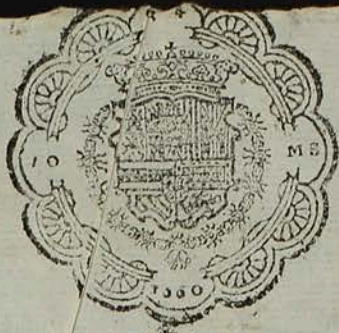 10 MS
1660